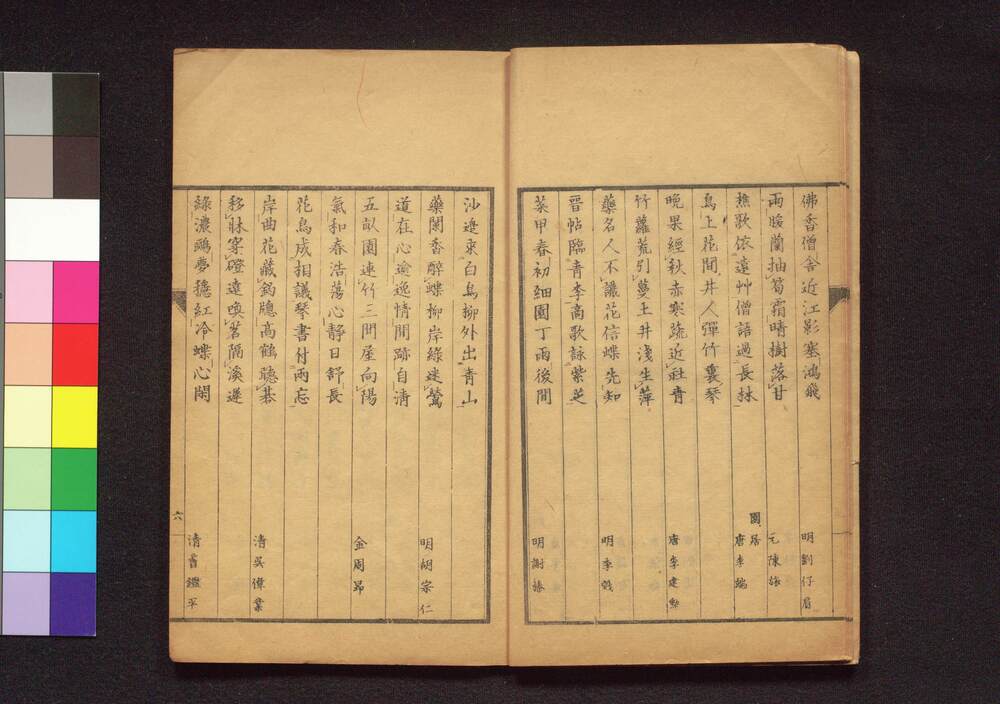 佛香僧舍近江影塞鴻飛 明劉仔肩
雨暖蘭抽筍霜晴樹落甘 元陳旅
樵歌依遠艸僧語過長林 唐李端
園居
鳥上花間井人彈竹裏琴
晚果經秋赤寒蔬近社青 唐李建勲
竹蘿荒引蔓土井淺生萍
藥名人不識花信蝶先知 明李戣
晉帖臨青李商歌詠紫芝
菜甲春初細園丁雨後閒 明謝榛
沙邊來白鳥柳外出青山
藥闌香醉蝶柳岸綠迷鶯 明胡宗仁
道在心逾逸情閒跡自清
五畝園連竹三間屋向陽 金周昂
氣和春浩蕩心靜日舒長
花鳥成相識琴書付兩忘
岸曲花藏釣牕高鶴聽碁 清吳偉業
移牀穿磴遠喚茗隔溪遲
綠濃鷗夢穩紅冷蝶心閑 清曹鑑平
六